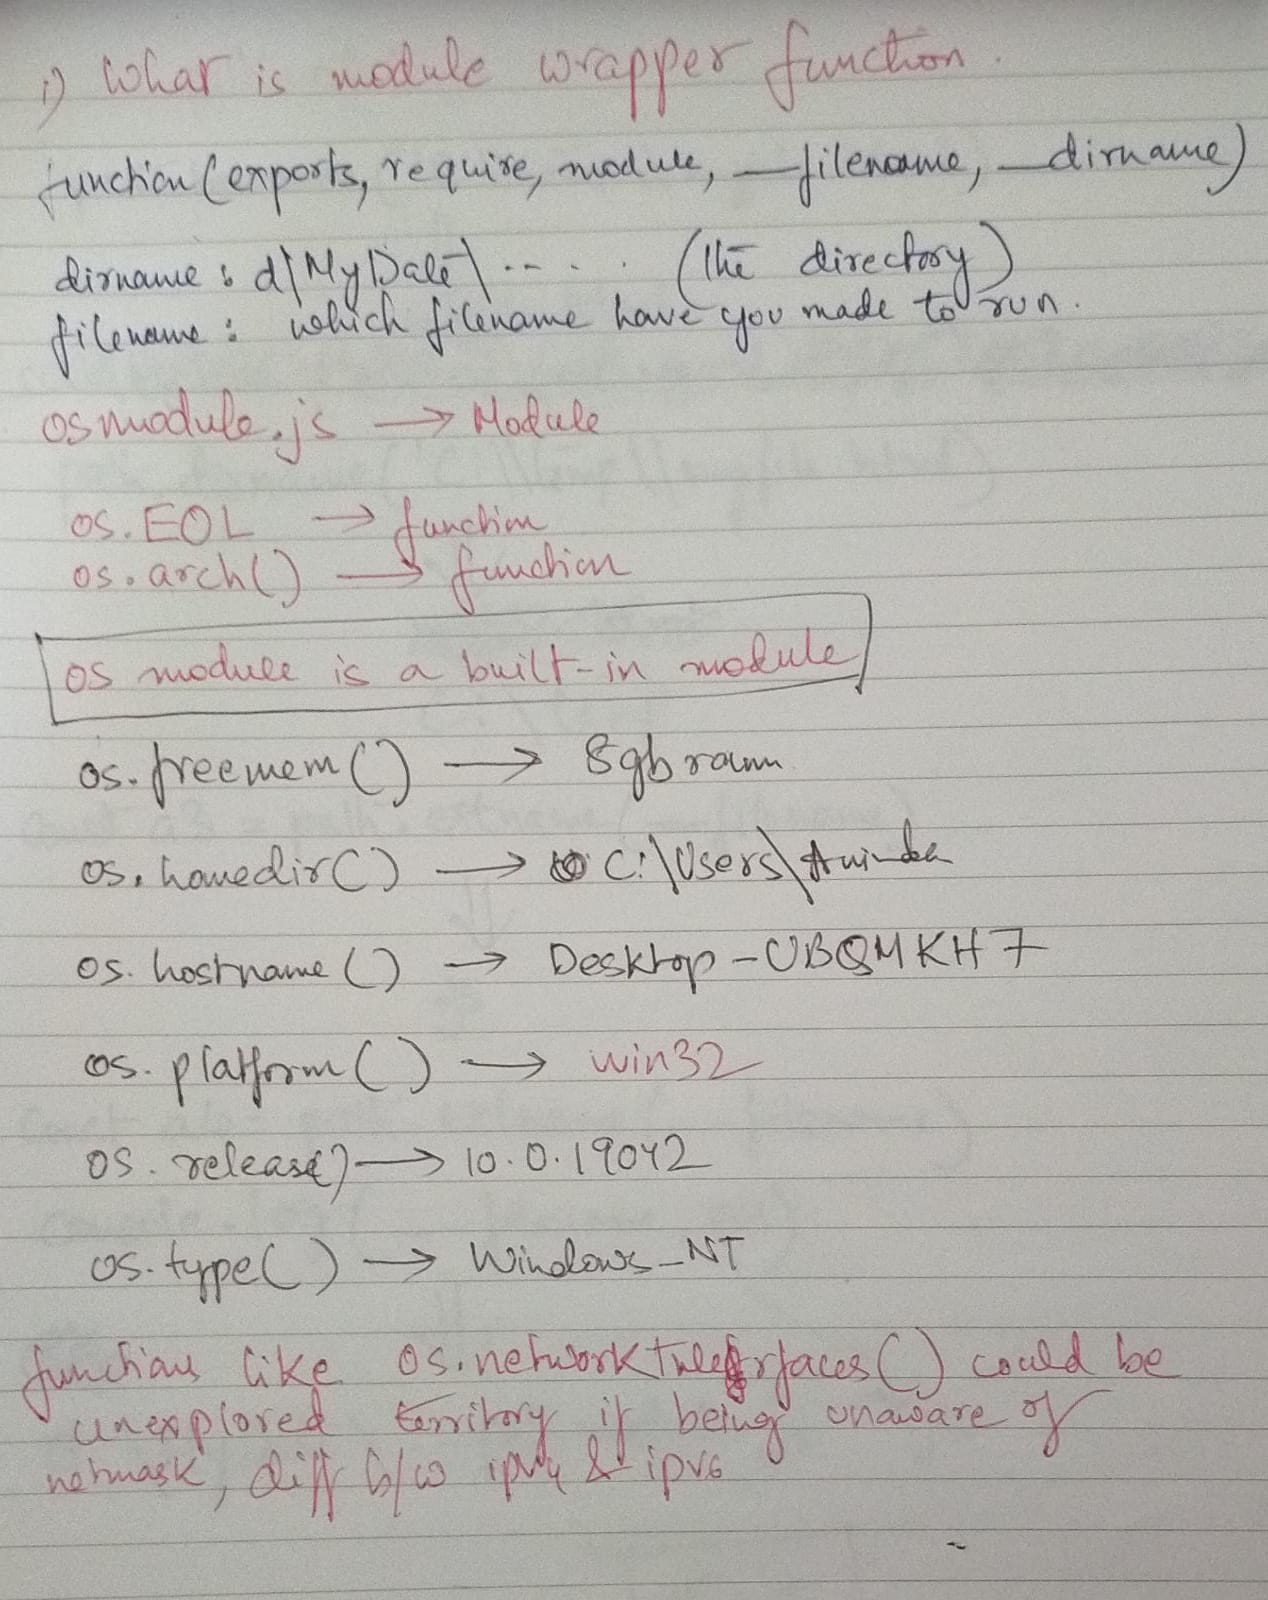 1) What is module wrapper function.
function (exports, require, module, __filename, __dirname)
dirname : d\MyData\ ..... (the directory)
filename : which filename have you made to run.
osmodule.js → Module
os.EOL → function
os.arch() → function
os module is a built-in module
os.freemem() → 8gb ram
os.homedir() → C:\Users\Aninda
os.hostname() → Desktop-UBQMKH7
os.platform() → win32
os.release() → 10.0.19042
os.type() → Windows_NT
functions like os.networkInterfaces() could be
unexplored territory if being unaware of
netmask, diff b/w ipv4 & ipv6